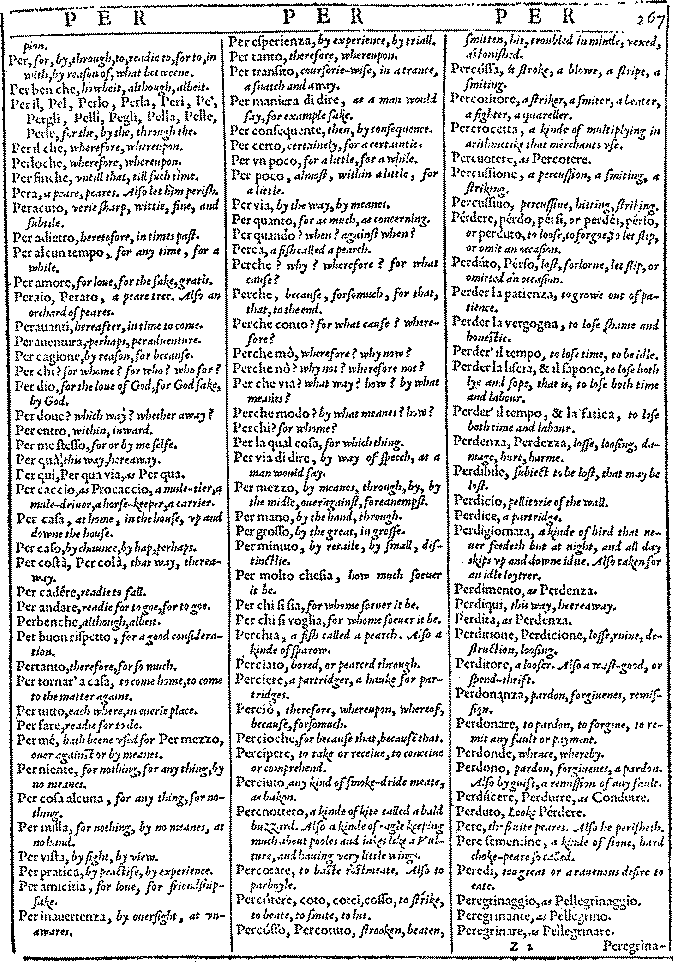 PER PER PER 267
pion.
Per, for, by, through, to, readie to, for to, in
with, by reason of, what betweene.
Per ben che, howbeit, although, albeit.
Per il, Pel, Perlo, Perla, Peri, Pe',
Pergli, Pelli, Pegli, Pella, Pelle,
Perle, for the, by the, through the.
Per il che, wherefore, whereupon.
Perloche, wherefore, whereupon.
Per finche, vntill that, till such time.
Pera, a peare, peares. Also let him perish.
Peracuto, verie sharp, wittie, fine, and
subtile.
Per adietro, heretofore, in times past.
Per alcun tempo, for any time, for a
while.
Per amore, for loue, for the sake, gratis.
Peraio, Perato, a peare tree. Also an
orchard of peares.
Perauanti, hereafter, in time to come.
Perauentura, perhaps, peraduenture.
Per cagione, by reason, for because.
Per chi? for whome? for who? who for?
Per dio, for the loue of God, for Gods sake,
by God.
Per doue? which way? whether away?
Per entro, within, inward.
Per me stesso, for or by me selfe.
Per quà, this way, hereaway.
Per qui, Per qua via, as Per qua.
Per caccio, as Procaccio, a mule-tier, a
mule-driuer, a horse-keeper, a carrier.
Per casa, at home, in the house, vp and
downe the house.
Per caso, by chaunce, by hap, perhaps.
Per costà, Per colà, that way, therea-
way.
Per cadére, readie to fall.
Per andare, readie for to goe, for to goe.
Perbenche, although, albeit.
Per buon rispetto, for a good consideration.
Pertanto, therefore, for so much.
Per tornar' a casa, to come home, to come
to the matter againe.
Per tutto, each where, in euerie place.
Per fare, readie for to do.
Per mé, hath beene vsed for Per mezzo,
ouer against or by meanes.
Per niente, for nothing, for any thing, by
no meanes.
Per cosa alcuna, for any thing, for no-
thing.
Per nulla, for nothing, by no meanes, at
no hand.
Per vista, by sight, by view.
Per pratica, by practise, by experience.
Per amicitia, for loue, for friendship-
sake.
Per inauertenza, by ouersight, at vn-
awares.
Per esperienza, by experience, by triall.
Per tanto, therefore, whereupon.
Per transito, coursorie-wise, in a trance,
a snatch and away.
Per maniera di dire, as a man would
say, for example sake.
Per consequente, then, by consequence.
Per certo, certainely, for a certaintie.
Per vn poco, for a little, for a while.
Per poco, almost, within a little, for
a little.
Per via, by the way, by meanes.
Per quanto, for as much, as concerning.
Per quando? when? against when?
Perca, a fish called a pearch.
Perche? why? wherefore? for what
cause?
Perche, because, forsomuch, for that,
that, to the end.
Perche conto? for what cause? where-
fore?
Perche mò, wherefore? why now?
Perche nò? why not? wherefore not?
Perche via? what way? how? by what
meanes?
Perche modo? by what meanes? how?
Perchi? for whome?
Per la qual cosa, for which thing.
Per via di dire, by way of speech, as a
man would say.
Per mezzo, by meanes, through, by, by
the midst, ouer against, foreanempst.
Per mano, by the hand, through.
Per grosso, by the great, in grosse.
Per minuto, by retaile, by small, dis-
tinctlie.
Per molto chesia, how much soeuer
it be.
Per chi si sia, for whome soeuer it be.
Per chi si voglia, for whome soeuer it be.
Perchia, a fish called a pearch. Also a
kinde of sparow.
Perciato, bored, or pearced through.
Perciere, a partridger, a hauke for par-
tridges.
Perciò, therefore, whereupon, whereof,
because, forsomuch.
Percioche, for because that, because that.
Percipere, to take or receiue, to conceiue
or comprehend.
Perciuto, any kind of smoke-dride meate,
as bakon.
Percnottero, a kinde of kite called a bald
buzzard. Also a kinde of eagle keeping
much about pooles and lakes like a Vul-
ture, and hauing very little wings.
Percotare, to baste rostmeate. Also to
parboyle.
Percótere, coto, cotei, cosso, to strike,
to beate, to smite, to hit.
Percósso, Percotuto, strooken, beaten,
smitten, hit, troubled in minde, vexed,
astonished.
Percóssa, a stroke, a blowe, a stripe, a
smiting.
Percotitore, a striker, a smiter, a beater,
a fighter, a quareller.
Percrocetta, a kinde of multiplying in
arithmetike that merchants vse.
Percuotere, as Percotere.
Percussione, a percussion, a smiting, a
striking.
Percussiuo, percussiue, hitting, striking.
Pérdere, pérdo, pérsi, or perdei, pérso,
or perduto, to loose, to forgoe, to let slip,
or omit an occasion.
Perdúto, Pérso, lost, forlorne, let slip, or
omitted an occasion.
Perder la patienza, to growe out of pa-
tience.
Perder la vergogna, to lose shame and
honestie.
Perder' il tempo, to lose time, to be idle.
Perder la liscia, & il sapone, to lose both
lye and sope, that is, to lose both time
and labour.
Perder' il tempo, & la fatica, to lose
both time and labour.
Perdenza, Perdezza, losse, loosing, da-
mage, hurt, harme.
Perdibile, subiect to be lost, that may be
lost.
Perdicio, pellitorie of the wall.
Perdice, a partridge.
Perdigiornata, a kinde of bird that ne-
uer feedeth but at night, and all day
skips vp and downe idlue. Also taken for
an idle loytrer.
Perdimento, as Perdenza.
Perdiqui, this way, hereaway.
Perdita, as Perdenza.
Perditione, Perdicione, losse, ruine, de-
struction, loosing.
Perditore, a looser. Also a wast-good, or
spend-thrift.
Perdonanza, pardon, forgiuenes, remis-
sion.
Perdonare, to pardon, to forgiue, to re-
mit any fault or payment.
Perdonde, whence, whereby.
Perdono, pardon, forgiuenes, a pardon.
Also by gift, a remission of any fault.
Perdúcere, Perdurre, as Condurre.
Perduto, Looke Pérdere.
Pere, the fruite peares. Also he perisheth.
Pere sementine, a kinde of stone, hard
choke-peare so called.
Peredi, too great or a rauenous desire to
eate.
Peregrinaggio, as Pellegrinaggio.
Peregrinante, as Pellegrino.
Peregrinare, as Pellegrinare.
Z 2 Peregrina-